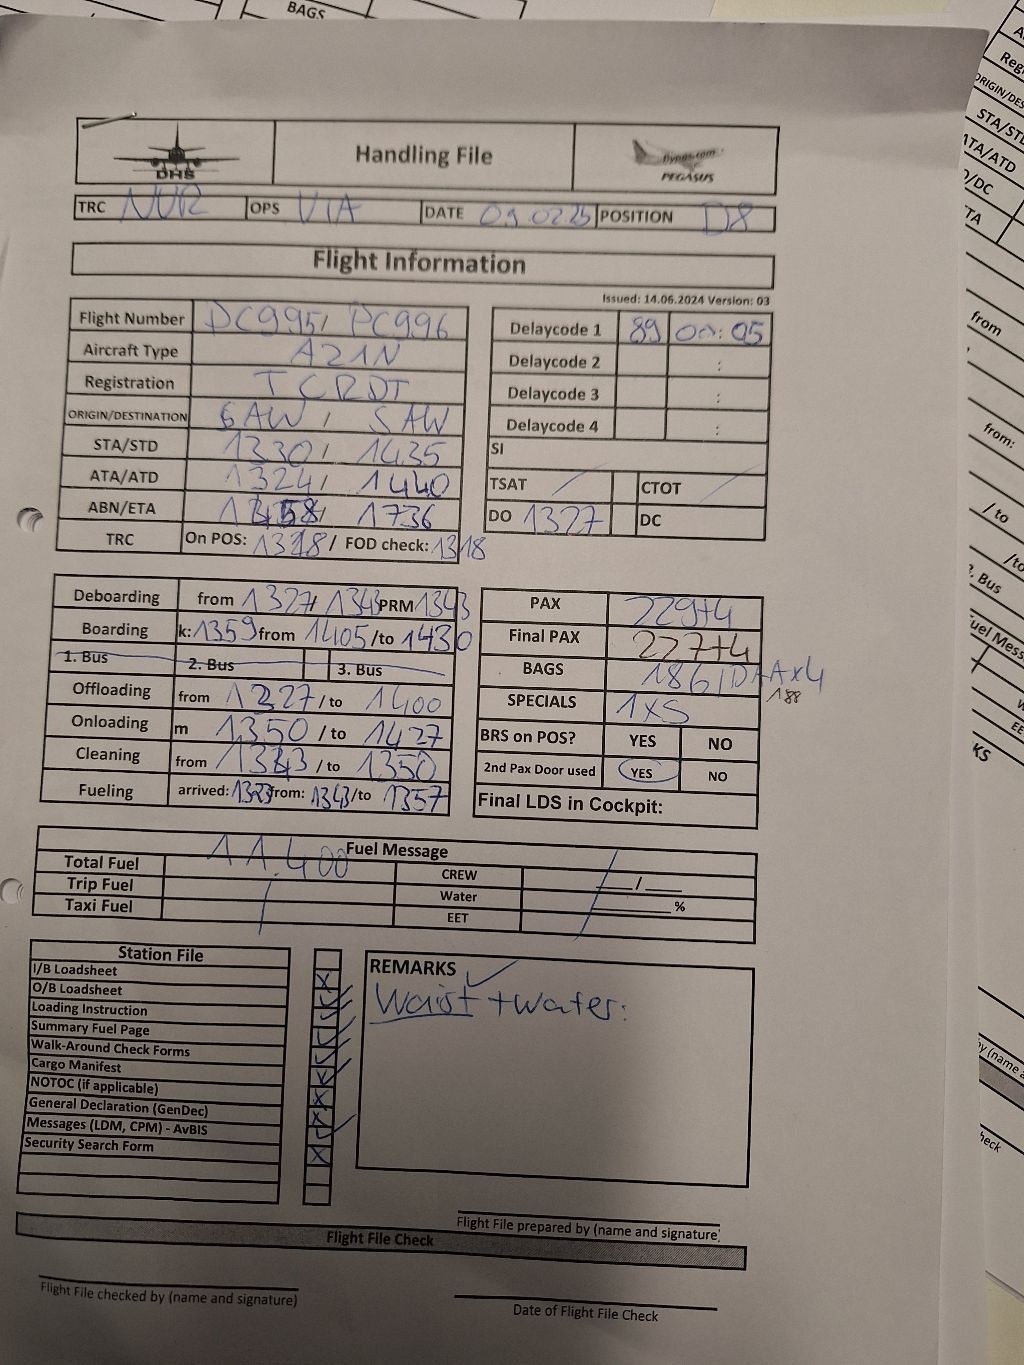 BAGS
DHS
Handling File
flypgs.com
PEGASUS
TRC NUR OPS VIA DATE 09.02.25 POSITION D8
Flight Information
Issued: 14.06.2024 Version: 03
Flight Number PC995/ PC996
Aircraft Type A21N
Registration TCRDT
ORIGIN/DESTINATION SAW / SAW
STA/STD 1330/ 1435
ATA/ATD 1324/ 1440
ABN/ETA 1736
TRC On POS: 1318 / FOD check: 1318
Delaycode 1 89 00:05
Delaycode 2 :
Delaycode 3 :
Delaycode 4 :
SI
TSAT / CTOT /
DO 1327 DC
Deboarding from 1327/ 1343 PRM 1343
Boarding k: 1359 from 1405 /to 1430
1. Bus 2. Bus 3. Bus
Offloading from 1327 / to 1400
Onloading m 1350 / to 1427
Cleaning from 1343 / to 1350
Fueling arrived: 1323 from: 1343 /to 1357
PAX 229+4
Final PAX 227+4
BAGS 186/DAAx4
188
SPECIALS 1xS
BRS on POS? YES NO
2nd Pax Door used YES NO
Final LDS in Cockpit:
Fuel Message
Total Fuel 11.400 CREW __/__
Trip Fuel Water ____ %
Taxi Fuel EET
Station File
I/B Loadsheet
O/B Loadsheet
Loading Instruction
Summary Fuel Page
Walk-Around Check Forms
Cargo Manifest
NOTOC (if applicable)
General Declaration (GenDec)
Messages (LDM, CPM) - AvBIS
Security Search Form
REMARKS
Waist + water:
Flight File prepared by (name and signature)
Flight File Check
Flight File checked by (name and signature)
Date of Flight File Check
STA/STD
ATA/ATD
from
from:
/ to
/to
2. Bus